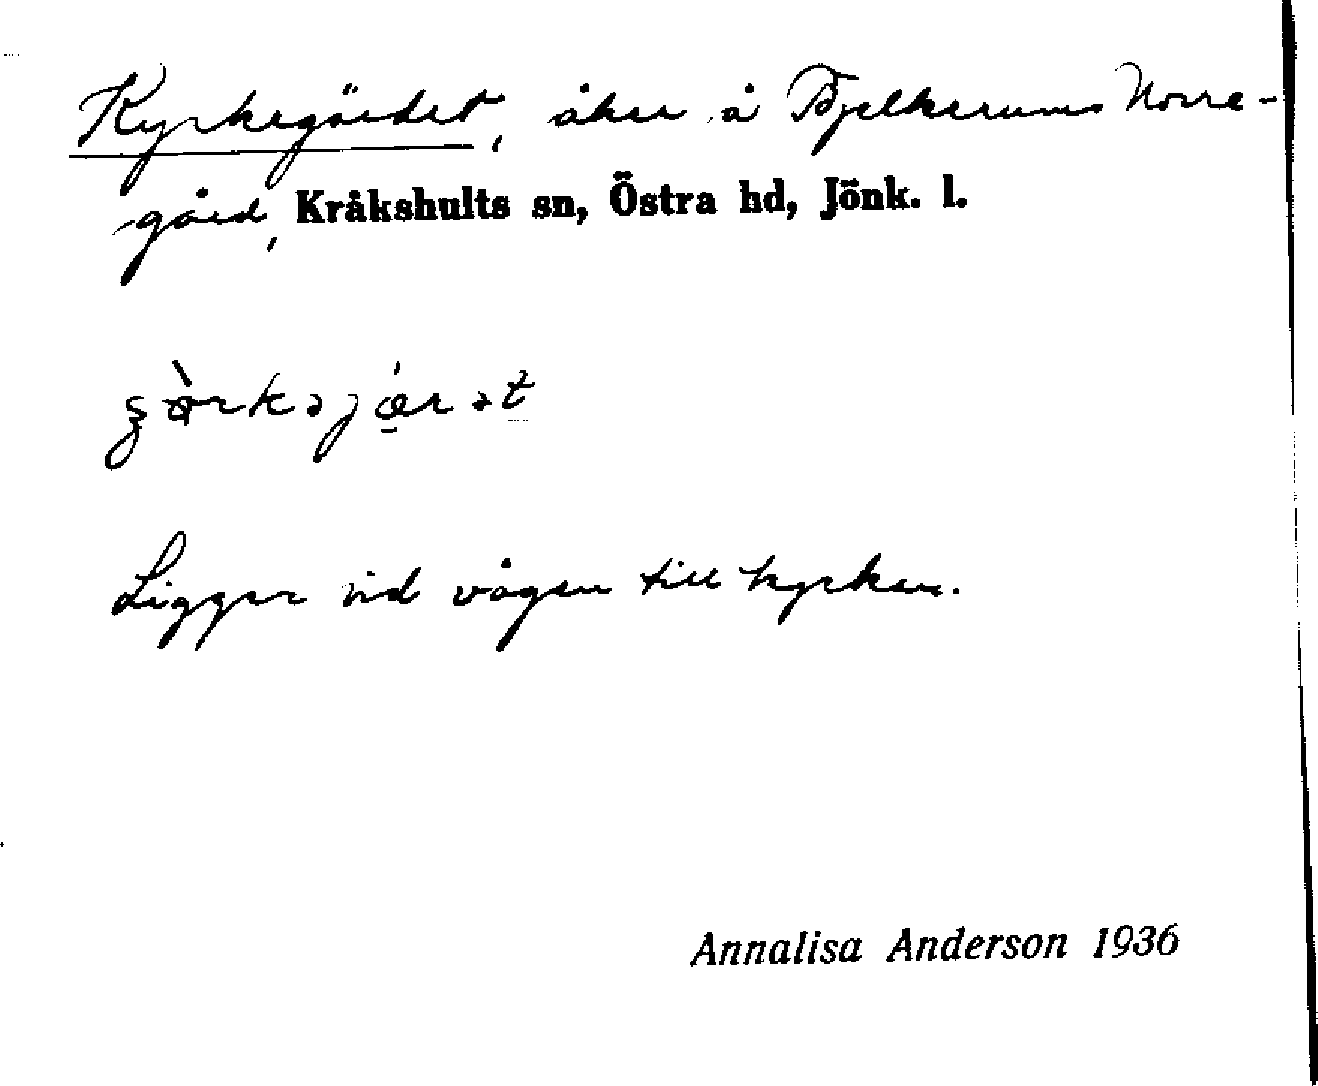 Kyrkegärdet, åker å Bjelkerums Norre-
gård, Kråkshults sn, Östra hd, Jönk. l.
Ligger vid vägen till kyrkan.
Annalisa Anderson 1936